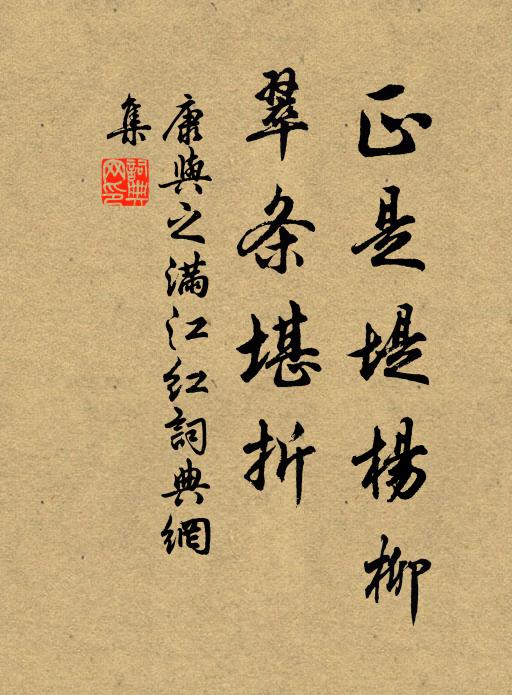 正是堤楊柳
翠条堪折
康與之满江红詞典網
集
詞典
网印